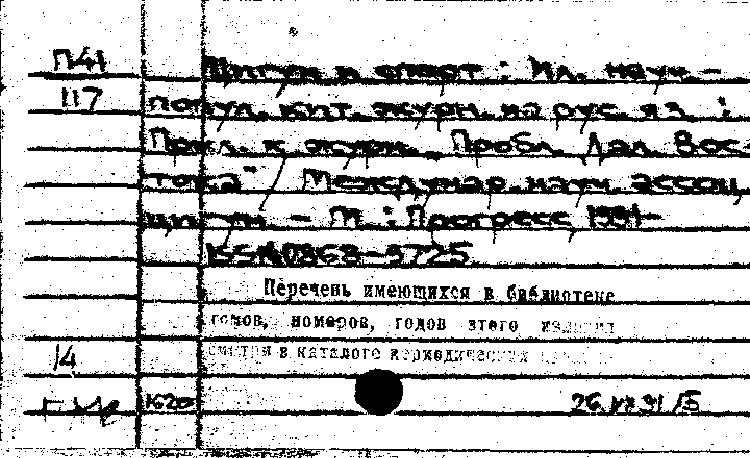 П41 Цигун и спорт : Ил. науч. –
117 попул. кит. журн. на рус. яз. :
Прил. к журн. „Пробл. Дал. Вос-
тока" Междунар. науч. ассоц.
цигун. – М. : Прогресс 1991–
ISSN 0868-3725
Перечень имеющихся в библиотеке
томов, номеров, годов этого издания
смотри в каталоге периодических
14
1620 26.VII.91